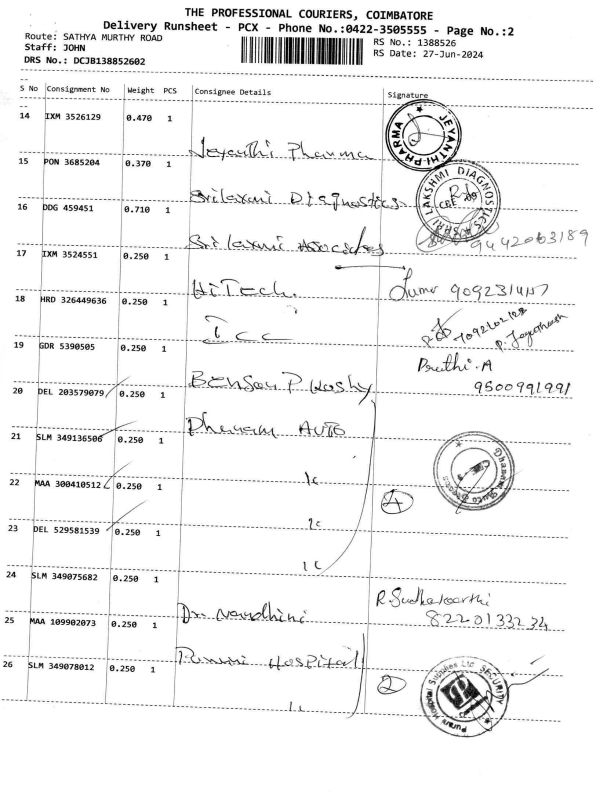 THE PROFESSIONAL COURIERS, COIMBATORE
Delivery Runsheet - PCX - Phone No.:0422-3505555 - Page No.:2
Route: SATHYA MURTHY ROAD
RS No.: 1388526
Staff: JOHN
RS Date: 27-Jun-2024
DRS No.: DCJB138852602
S No Consignment No Weight PCS Consignee Details Signature
14 IXM 3526129 0.470 1 Jeyanthi Pharma
JEYANTHI-PHARMA
15 PON 3685204 0.370 1 Srilaxmi Diagnostics
SHRI LAKSHMI DIAGNOSTICS
16 DDG 459451 0.710 1 Sri laxmi Assocites
9442063189
17 IXM 3524551 0.250 1 HiTech
18 HRD 326449636 0.250 1 Icc
19 GDR 5390505 0.250 1 Benson P Koshy
Pruthi.A
9500991991
20 DEL 203579079 0.250 1 Dhanam AUTO
21 SLM 349136506 0.250 1
22 MAA 300410512 0.250 1
4
23 DEL 529581539 0.250 1
24 SLM 349075682 0.250 1 Dr. Nandhini
8220133234
25 MAA 109902073 0.250 1 Purani Hospital
26 SLM 349078012 0.250 1
2
Purani Hospital Supplies Ltd SECURITY